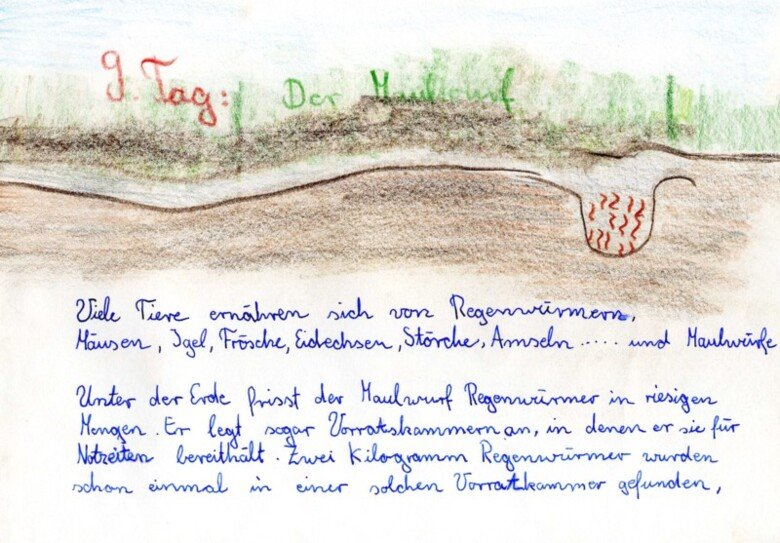 9. Tag: Der Maulwurf
Viele Tiere ernähren sich von Regenwürmern,
Mäusen, Igel, Frösche, Eidechsen, Störche, Amseln ..... und Maulwürfe
Unter der Erde frisst der Maulwurf Regenwürmer in riesigen
Mengen. Er legt sogar Vorratskammern an, in denen er sie für
Notzeiten bereithält. Zwei Kilogramm Regenwürmer wurden
schon einmal in einer solchen Vorratkammer gefunden,